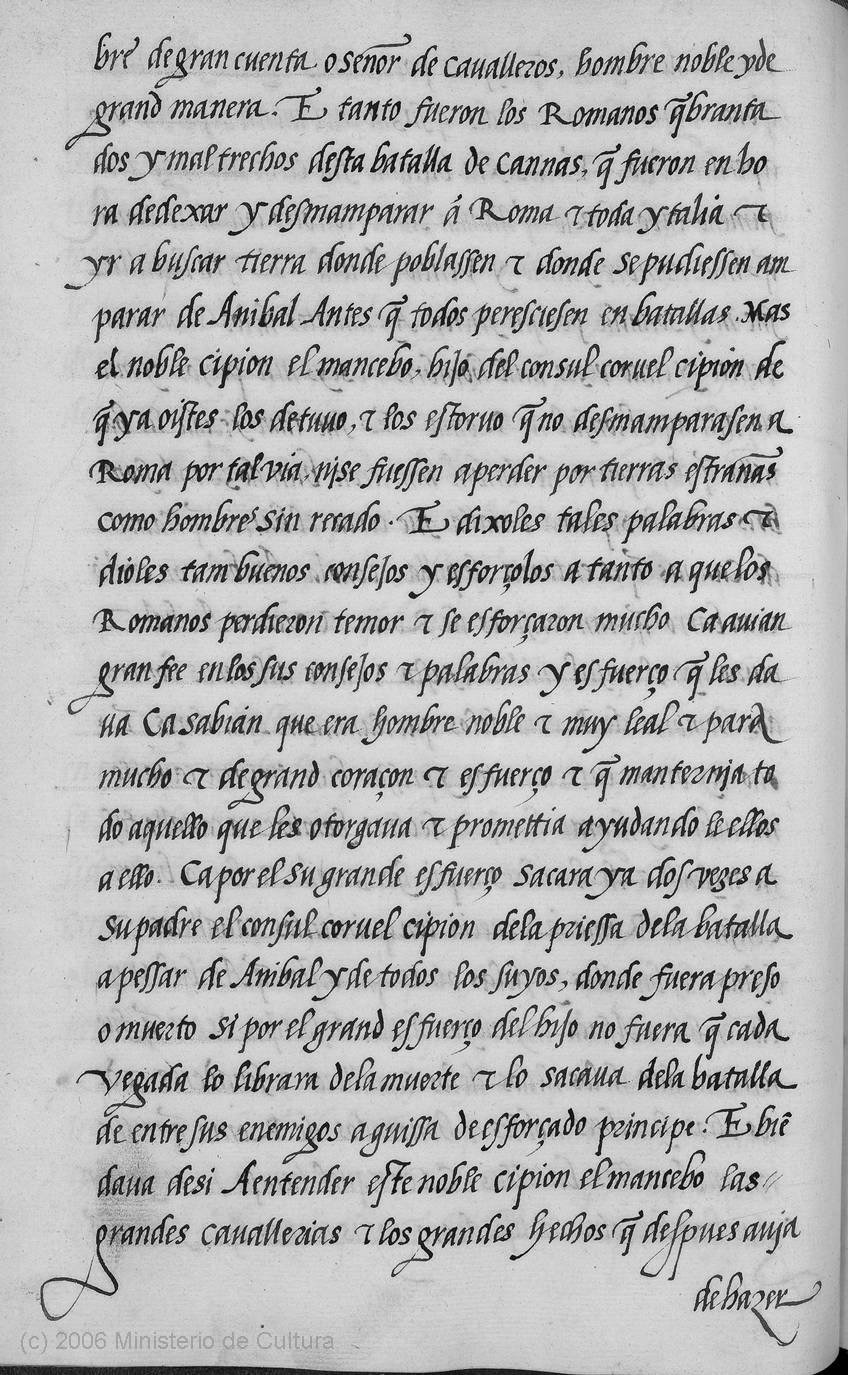 bre de gran cuenta o señor de cavalleros, hombre noble y de
grand manera. E tanto fueron los Romanos q̃branta
dos y mal trechos desta batalla de Cannas, q̃ fueron en ho
ra de dexar y desmamparar á Roma & toda ytalia &
yr a buscar tierra donde poblassen & donde se pudiessen am
parar de Anibal Antes q̃ todos peresciesen en batallas. Mas
el noble Cipion el mancebo, hijo del consul corvel cipion de
q̃ ya oistes los detuuo, & los estoruo q̃ no desmamparasen a
Roma por tal via, nj se fuessen a perder por tierras estrañas
como hombres sin recado. E dixoles tales palabras &
dióles tam buenos consejos y esforçolos a tanto a que los
Romanos perdieron temor & se esforçaron mucho Ca auian
gran fee en los sus consejos & palabras y esfuerço q̃ les da
ua Ca sabian que era hombre noble & muy leal & para
mucho & de grand coraçon & esfuerço & q̃ manternja to
do aquello que les otorgaua & promettia ayudando le ellos
a ello. Ca por el su grande esfuerço sacara ya dos vezes a
su padre el consul corvel cipion de la priessa de la batalla
a pessar de Anibal y de todos los suyos, donde fuera preso
o muerto si por el grand esfuerço del hijo no fuera q̃ cada
vegada lo librara de la muerte & lo sacaua de la batalla
de entre sus enemigos a guissa de esforçado principe: E biẽ
daua desi A entender este noble Cipion el mancebo las
grandes cavallerias & los grandes hechos q̃ despues auja
de hazer
(c) 2006 Ministerio de Cultura